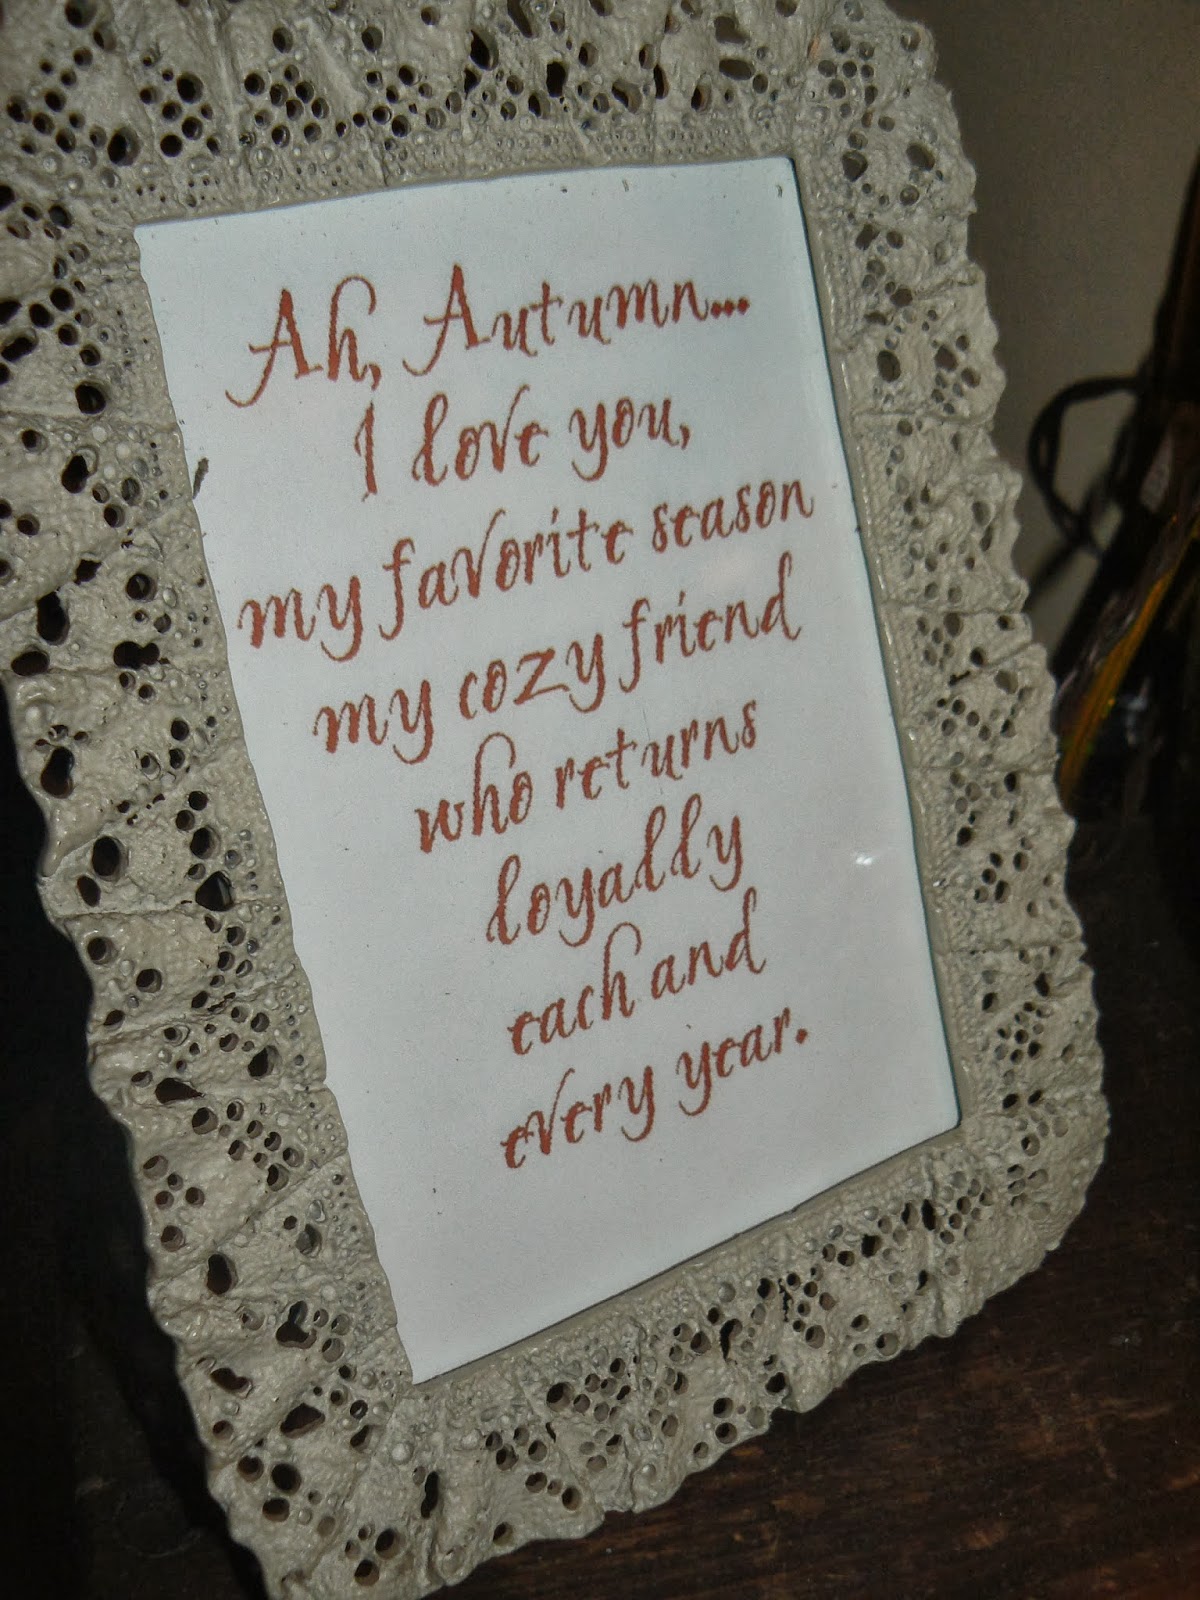 Ah, Autumn...
I love you,
my favorite season
my cozy friend
who returns
loyally
each and
every year.